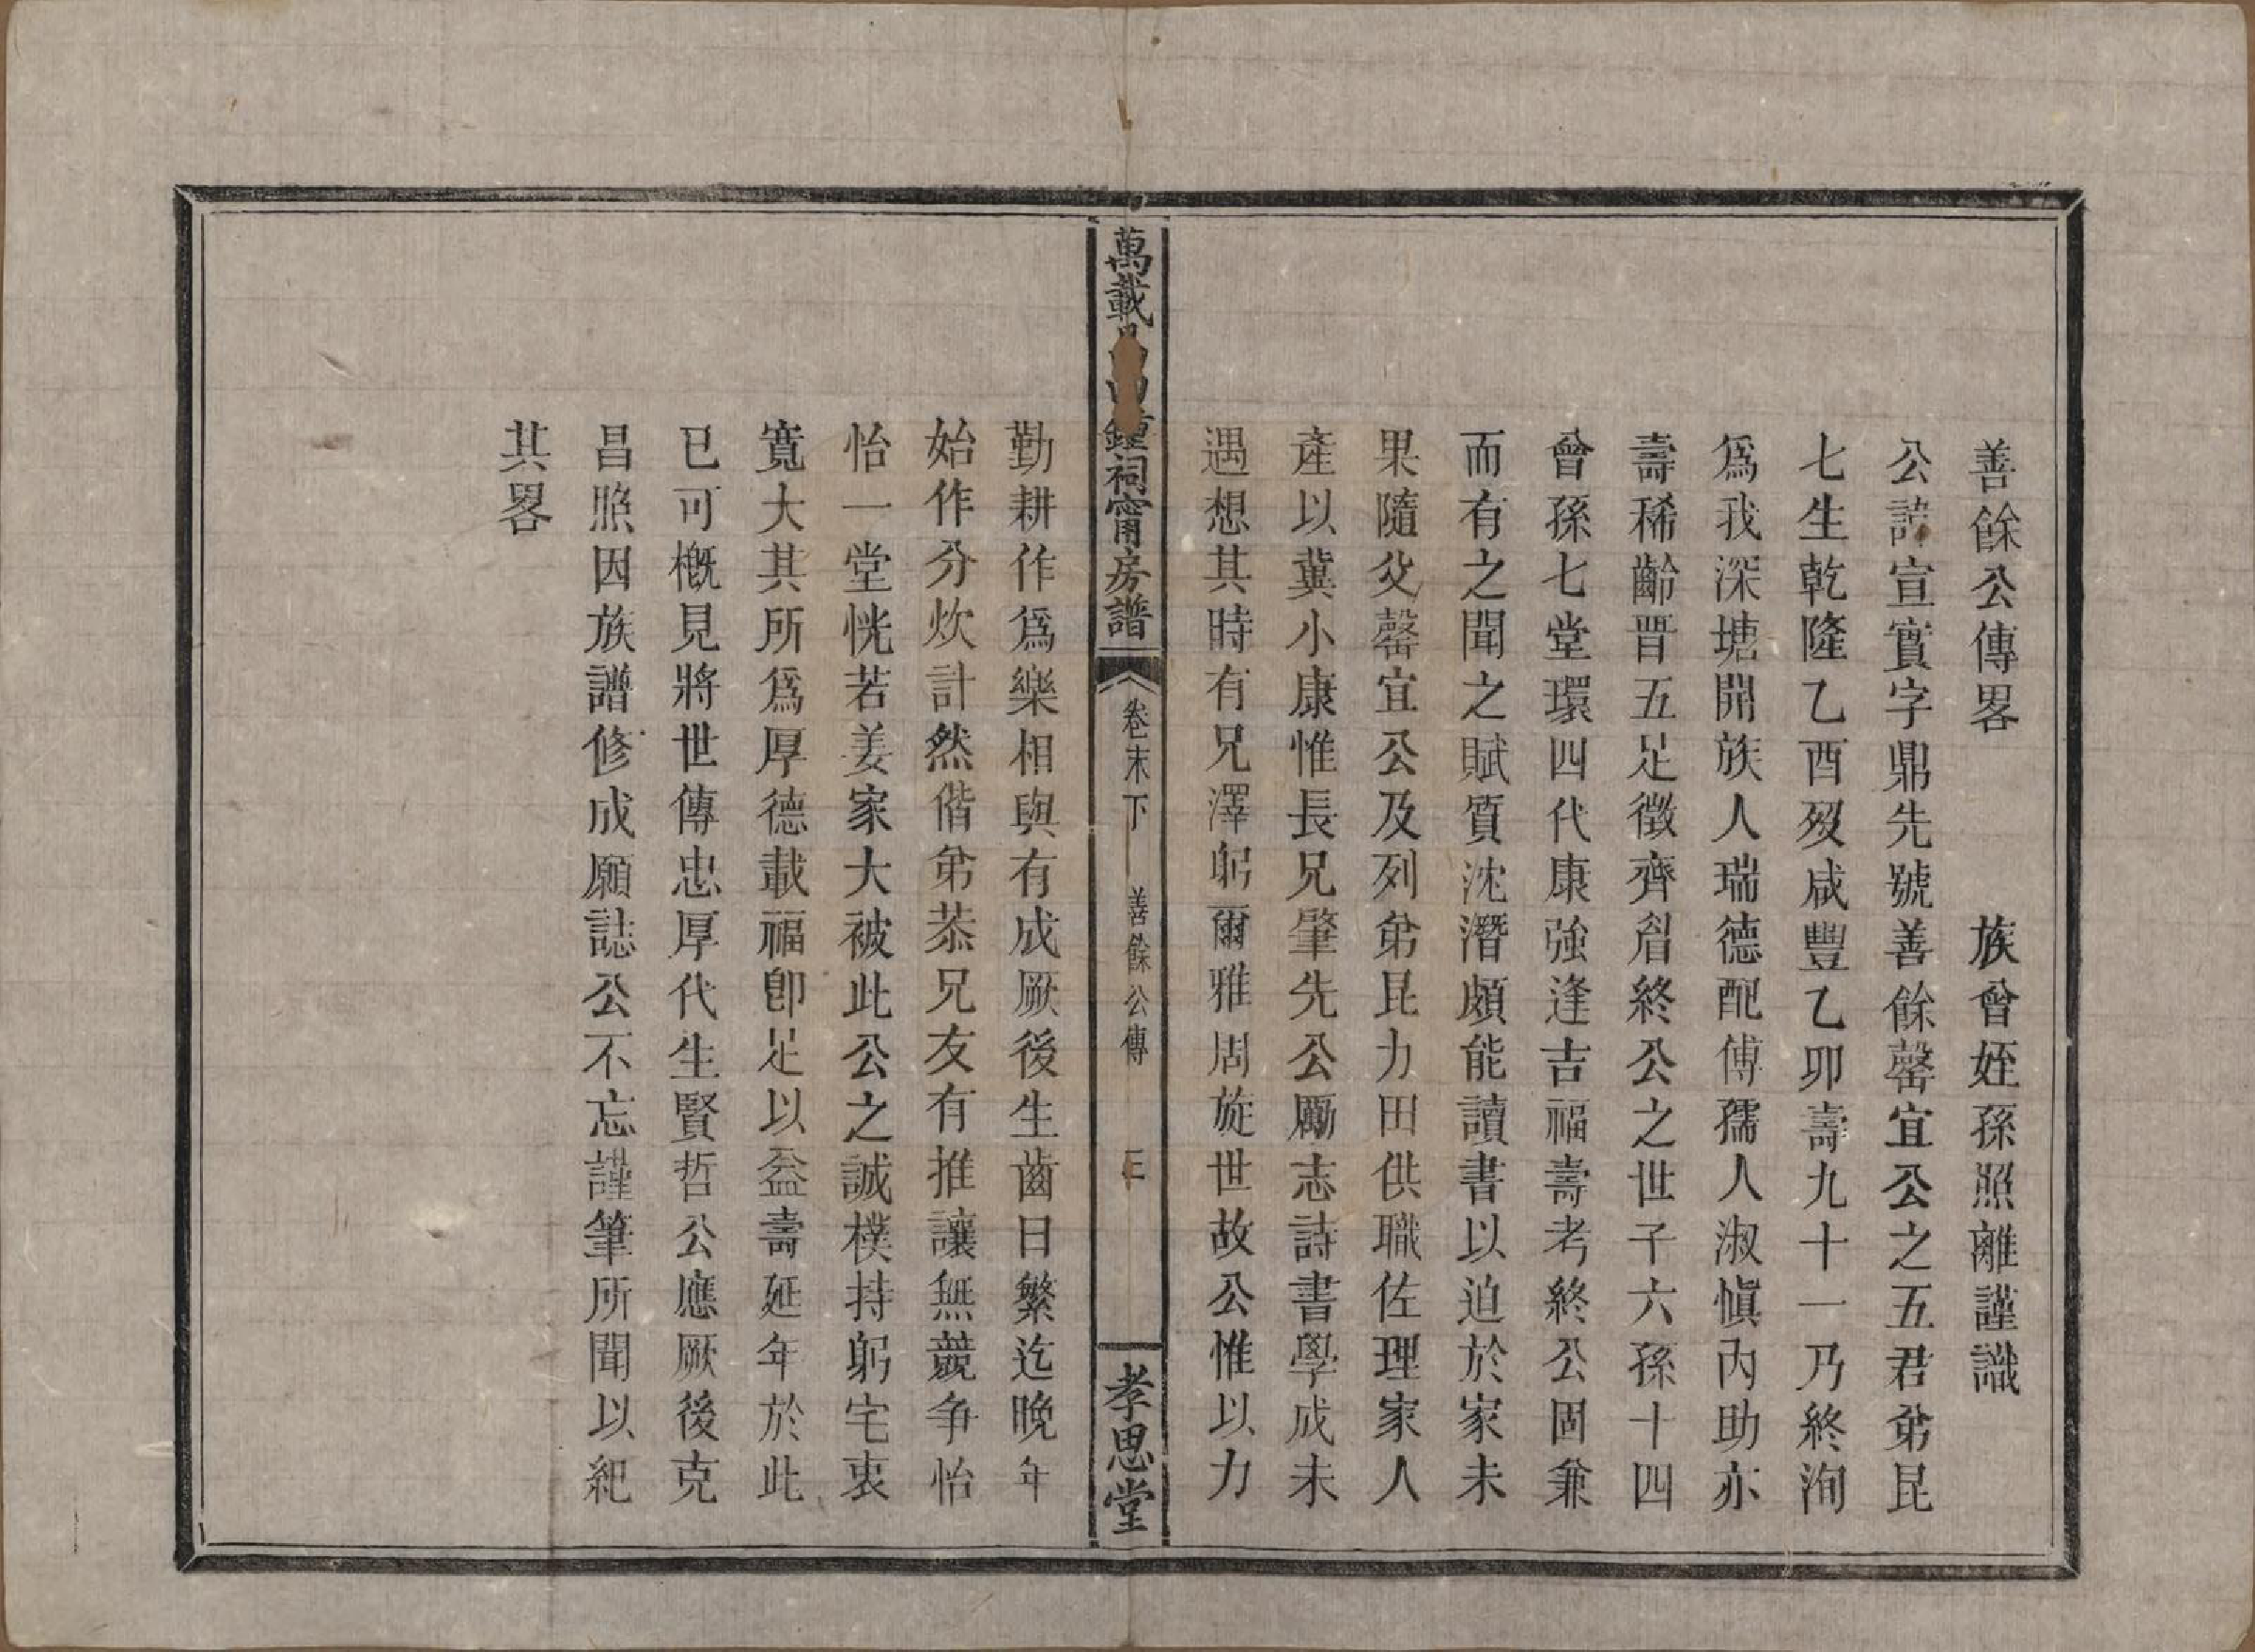 善餘公傳畧　　　族曾姪孫照離謹識
公諱宣實字鼎先號善餘罄宜公之五君弟昆
七生乾隆乙酉歿咸豐乙卯壽九十一乃終洵
爲我深塘開族人瑞德配傅孺人淑愼內助亦
壽稀齡晋五足徵齊眉終公之世子六孫十四
曾孫七堂環四代康強逢吉福壽考終公固兼
而有之聞之賦質沈潛頗能讀書以迫於家未
果隨父罄宜公及列弟昆力田供職佐理家人
產以冀小康惟長兄肇先公勵志詩書學成未
遇想其時有兄澤躬爾雅周旋世故公惟以力
萬載 鍾祠甯房譜
卷末下
善餘公傳
三
孝思堂
勤耕作爲樂相與有成厥後生齒日繁迄晚年
始作分炊計然偕弟恭兄友有推讓無競争怡
怡一堂恍若姜家大被此公之誠樸持躬宅衷
寬大其所爲厚德載福卽足以益壽延年於此
已可槪見將世傳忠厚代生賢哲公應厥後克
昌照因族譜修成願誌公不忘謹筆所聞以紀
其畧